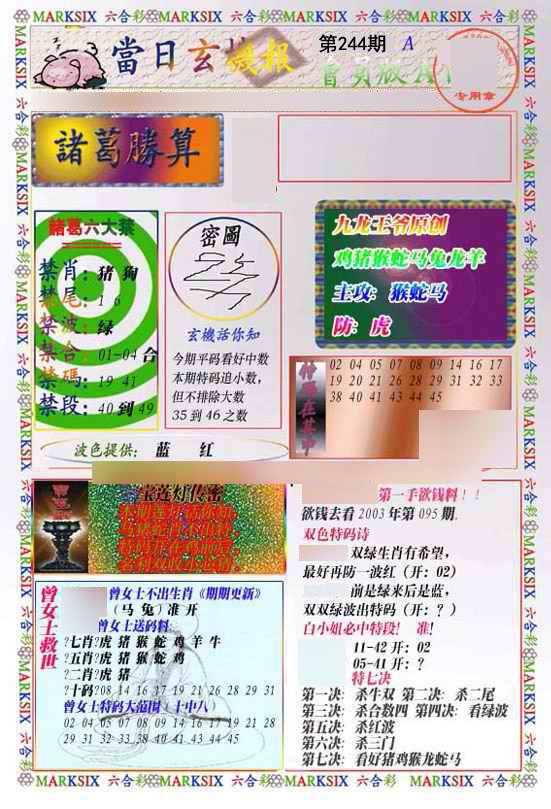 MARKSIX 六合彩 MARKSIX 六合彩 MARKSIX 六合彩 MARKSIX 六合彩
當日玄機報
第244期 A
會員版A
专用章
諸葛勝算
諸葛六大禁
禁肖：猪 狗
禁尾：1 6
禁波：绿
禁合：01-04 合
禁碼：19 41
禁段：40 到 49
密圖
玄機話你知
今期平码看好中数
本期特码追小数，
但不排除大数
35 到 46 之数
九龙王爷原创
鸡猪猴蛇马兔龙羊
主攻：猴蛇马
防：虎
02 04 05 07 08 09 14 16 17
19 20 21 26 28 29 31 32 33
38 40 41 43 44 45
波色提供： 蓝 红
宝莲灯传密
第一手欲钱料！！
欲钱去看 2003 年第 095 期.
双色特码诗
双绿生肖有希望，
最好再防一波红（开：02）
前是绿来后是蓝，
双双绿波出特码（开：？）
白小姐必中特段！ 准！
11-42 开：02
05-41 开：？
特七决
第一决：杀牛双 第二决：杀二尾
第三决：杀合数四 第四决：看绿波
第五决：杀红波
第六决：杀三门
第七决：看好猪鸡猴龙蛇马
曾女士救世
曾女士不出生肖《期期更新》
（马 兔）准 开
曾女士送码料
?七肖?虎 猪 猴 蛇 鸡 羊 牛
?五肖?虎 猪 猴 蛇 鸡
?二肖?虎 猪
?十码?08 14 16 17 19 21 26 28 29 31
曾女士特码大范围（十中八）
02 04 05 07 08 09 14 16 17 19 21 28
29 31 32 33 38 40 41 43 44 45
MARKSIX 六合彩 MARKSIX 六合彩 MARKSIX 六合彩 MARKSIX 六合彩